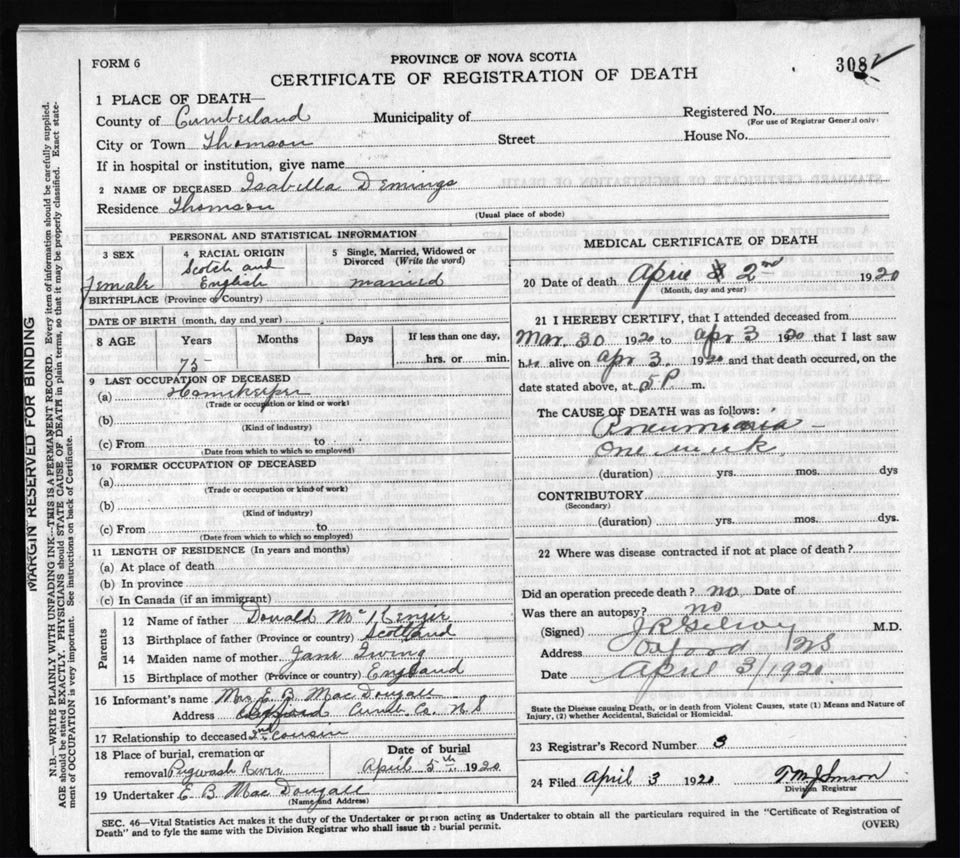 FORM 6
PROVINCE OF NOVA SCOTIA
308
CERTIFICATE OF REGISTRATION OF DEATH
1 PLACE OF DEATH—
County of Cumberland Municipality of Registered No.
(For use of Registrar General only)
City or Town Thomson Street House No.
If in hospital or institution, give name
2 NAME OF DECEASED Isabella Demings
Residence Thomson
(Usual place of abode)
PERSONAL AND STATISTICAL INFORMATION
3 SEX 4 RACIAL ORIGIN 5 Single, Married, Widowed or Divorced (Write the word)
Female Scotch and English married
BIRTHPLACE (Province or Country)
DATE OF BIRTH (month, day and year)
8 AGE Years Months Days If less than one day,
75 hrs. or min.
9 LAST OCCUPATION OF DECEASED
(a) Housekeeper
(Trade or occupation or kind or work)
(b)
(Kind of industry)
(c) From to
(Date from which to which so employed)
10 FORMER OCCUPATION OF DECEASED
(a)
(Trade or occupation or kind of work)
(b)
(Kind of industry)
(c) From to
(Date from which to which so employed)
11 LENGTH OF RESIDENCE (In years and months)
(a) At place of death
(b) In province
(c) In Canada (if an immigrant)
Parents
12 Name of father Donald McKenzie
13 Birthplace of father (Province or country) Scotland
14 Maiden name of mother Jane Irving
15 Birthplace of mother (Province or country) England
16 Informant's name Mrs E. B. MacDougall
Address Oxford Cumb Co. N S
17 Relationship to deceased 2nd cousin
18 Place of burial, cremation or removal Pugwash River
Date of burial
April 5th 1920
19 Undertaker E B MacDougall
(Name and Address)
MEDICAL CERTIFICATE OF DEATH
20 Date of death April 2nd 1920
(Month, day and year)
21 I HEREBY CERTIFY, that I attended deceased from
Mar. 30 1920 to apr 3 1920 that I last saw
her alive on apr 3. 1920 and that death occurred, on the
date stated above, at 5 P m.
The CAUSE OF DEATH was as follows:
Pneumonia –
One week
(duration) yrs. mos. dys
CONTRIBUTORY
(Secondary)
(duration) yrs. mos. dys.
22 Where was disease contracted if not at place of death?
Did an operation precede death? no Date of
Was there an autopsy? no
(Signed) M.D.
Address Oxford NS
Date April 3/1920
State the Disease causing Death, or in death from Violent Causes, state (1) Means and Nature of
Injury, (2) whether Accidental, Suicidal or Homicidal.
23 Registrar's Record Number 3
24 Filed April 3 1920
Division Registrar
SEC. 46—Vital Statistics Act makes it duty of the Undertaker or person acting as Undertaker to obtain all the particulars required in the "Certificate of Registration of
Death" and to fyle the same with the Division Registrar who shall issue the burial permit.
(OVER)
MARGIN RESERVED FOR BINDING
N.B.—WRITE PLAINLY WITH UNFADING INK—THIS IS A PERMANENT RECORD. Every item of information should be carefully supplied.
AGE should be stated EXACTLY. PHYSICIANS should STATE CAUSE OF DEATH in plain terms, so that it may be properly classified. Exact state-
ment of OCCUPATION is very important. See instructions on back of Certificate.